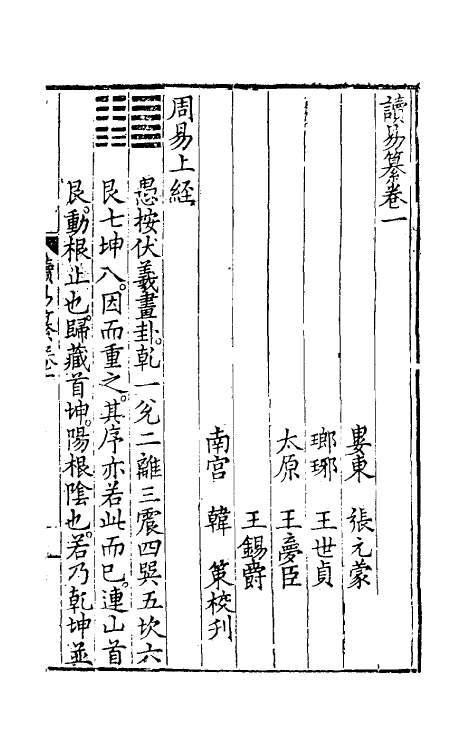 讀易纂卷一
婁東 張元蒙
瑯琊 王世貞
太原 王夢臣
王錫爵
南宮 韓 策梭刋
周易上經
愚按伏羲畫卦。乾一兌二離三震四巽五坎六
艮七坤八。因而重之。其序亦若此而已。連山首
艮。動根止也。歸藏首坤。陽根陰也。若乃乾坤並
讀易纂卷一